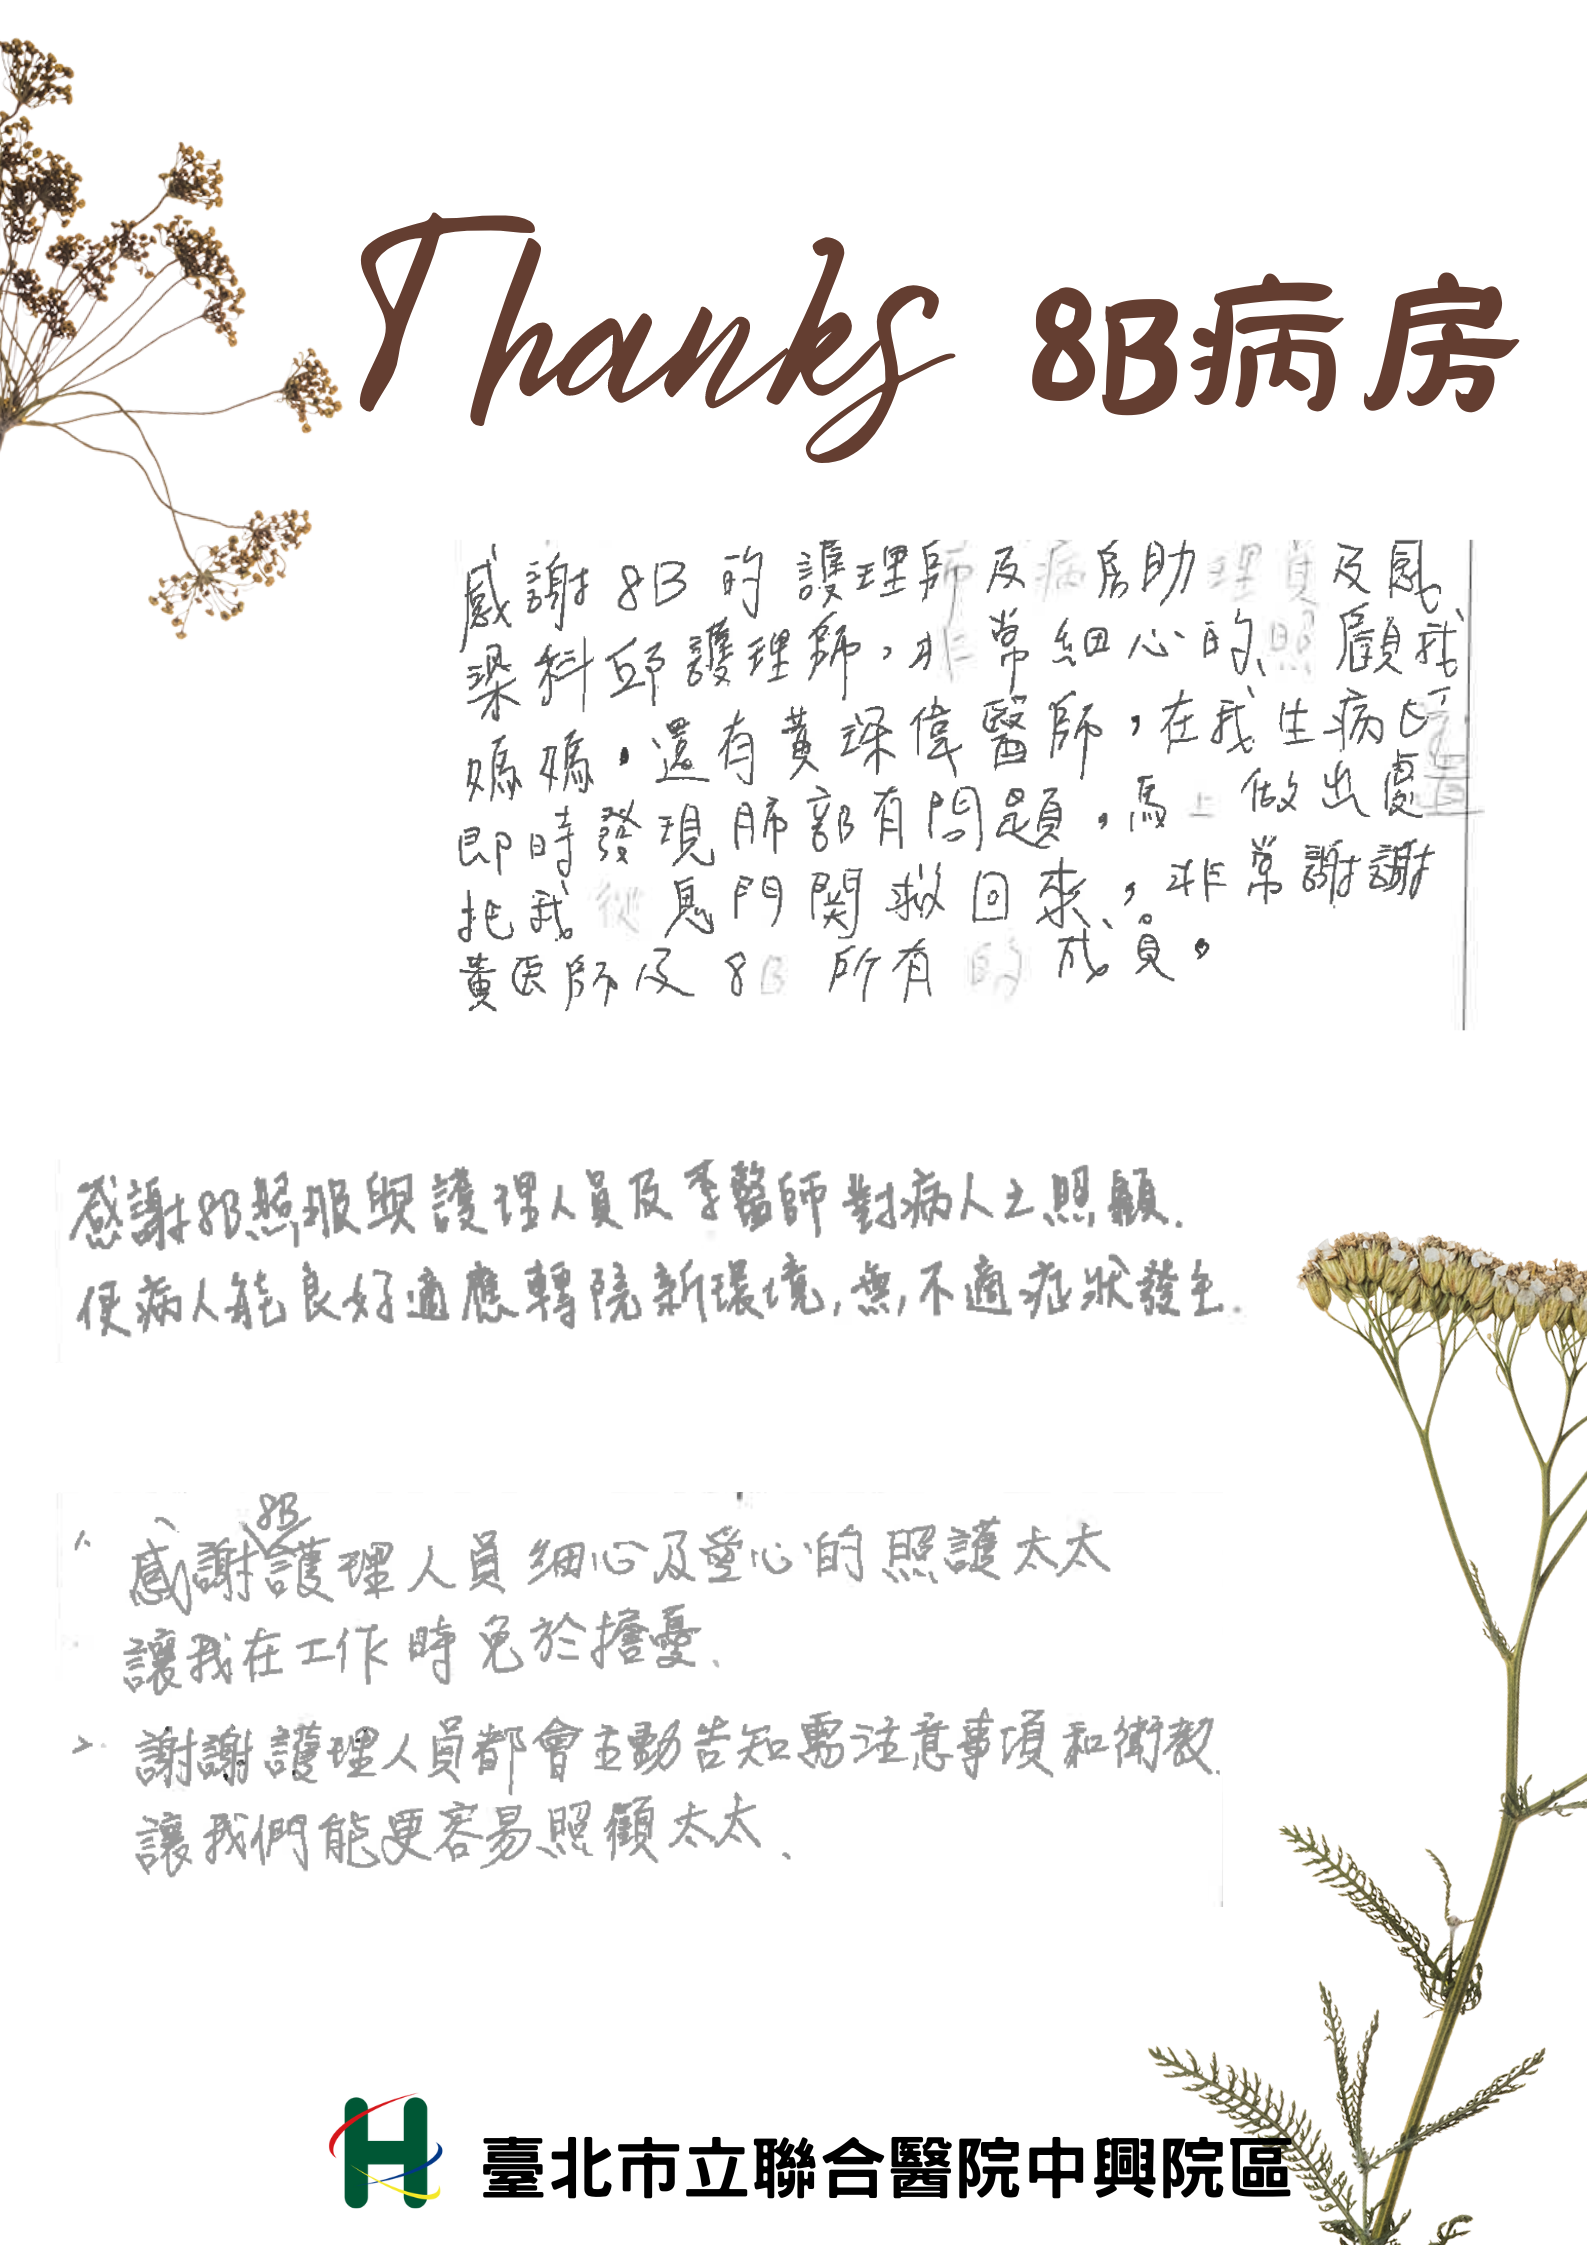 Thanks 8B病房
感謝 8B 的護理師及病房助理員及感
染科邱護理師,非常細心的照顧我
媽媽。還有黃琛偉醫師,在我生病時
即時發現肺部有問題,馬上做出處置
把我從鬼門関救回來,非常謝謝
黃医師及 8B 所有的成員。
感謝8B照服與護理人員及李醫師對病人之照顧.
使病人能良好適應轉院新環境,無,不適症狀發生.
1. 感謝8B護理人員細心及愛心的照護太太
讓我在工作時免於擔憂、
2. 謝謝護理人員都會主動告知需注意事項和衛教.
讓我們能更容易照顧太太、
臺北市立聯合醫院中興院區